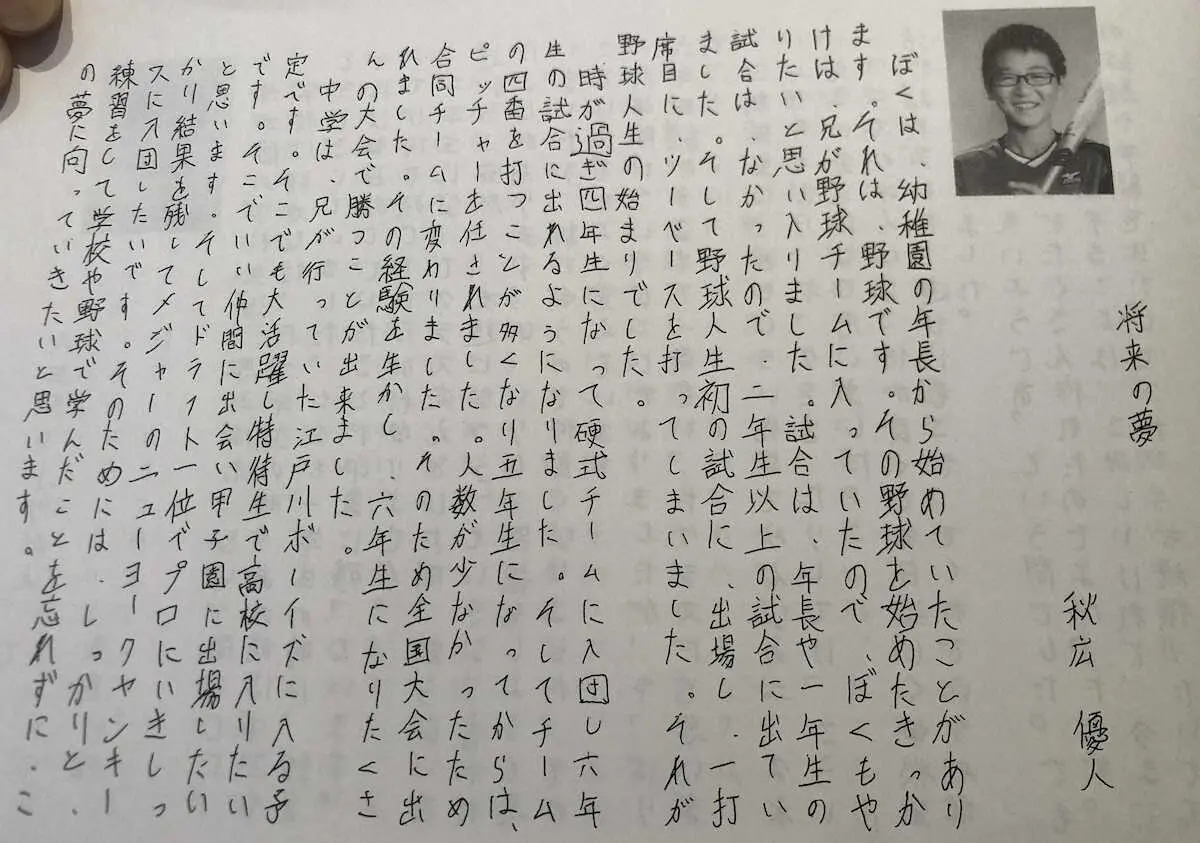 将来の夢
秋広 優人
ぼくは、幼稚園の年長から始めていたことがあり
ます。それは、野球です。その野球を始めたきっか
けは、兄が野球チームに入っていたので、ぼくもや
りたいと思い入りました。試合は、年長や一年生の
試合は、なかったので、二年生以上の試合に出てい
ました。そして野球人生初の試合に、出場し、一打
席目に、ツーベースを打ってしまいました。それが
野球人生の始まりでした。
時が過ぎ四年生になって硬式チームに入団し六年
生の試合に出れるようになりました。そしてチーム
の四番を打つことが多くなり五年生になってからは、
ピッチャーを任されました。人数が少なかったため
合同チームに変わりました。そのため全国大会に出
れました。その経験を生かし、六年生になりたくさ
んの大会で勝つことが出来ました。
中学は、兄が行っていた江戸川ボーイズに入る予
定です。そこでも大活躍し特待生で高校に入りたい
です。そこでいい仲間に出会い甲子園に出場したい
と思います。そしてドラフト一位でプロにいきしっ
かり結果を残してメジャーのニューヨークヤンキー
スに入団したいです。そのためには、しっかりと、
練習をして学校や野球で学んだことを忘れずに、こ
の夢に向っていきたいと思います。